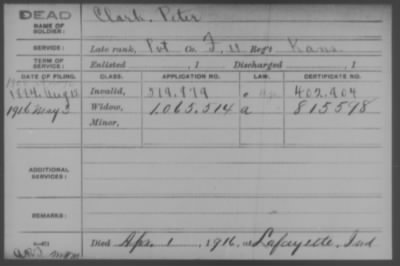 DEAD
NAME OF SOLDIER: Clark, Peter
SERVICE: Late rank, Pvt Co F, 11 Reg't Kans
TERM OF SERVICE: Enlisted , 1 Discharged , 1
DATE OF FILING. CLASS. APPLICATION NO. LAW. CERTIFICATE NO.
Aug Invalid, 519.879 402.904
1916 May 3 Widow, 1.065.514 a 815598
Minor,
ADDITIONAL SERVICES:
REMARKS:
Died Apr. 1, 1916, at Lafayette, Ind